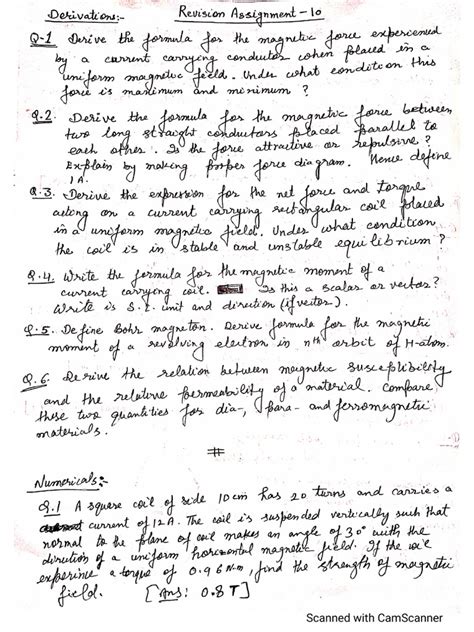 Derivations:- Revision Assignment-10
Q.1 Derive the formula for the magnetic force experienced
by a current carrying conductor when placed in a
uniform magnetic field. Under what condition this
force is maximum and minimum ?
Q.2. Derive the formula for the magnetic force between
two long straight conductors placed parallel to
each other. Is the force attractive or repulsive ?
Explain by making proper force diagram. Hence define
1A.
Q.3. Derive the expression for the net force and torque
acting on a current carrying rectangular coil placed
in a uniform magnetic field. Under what condition
the coil is in stable and unstable equilibrium ?
Q.4. Write the formula for the magnetic moment of a
current carrying coil. Is this a scalar or vector?
Write is S.I. unit and direction (if vector).
Q.5. Define Bohr magneton. Derive formula for the magnetic
moment of a revolving electron in nth orbit of H-atom.
Q.6. Derive the relation between magnetic susceptibility
and the relative permeability of a material. Compare
these two quantities for dia-, para- and ferromagnetic
materials.
#
Numericals:-
Q.1 A square coil of side 10cm has 20 turns and carries a
current of 12A. The coil is suspended vertically such that
normal to the plane of coil makes an angle of 30° with the
direction of a uniform horizontal magnetic field. If the coil
experience a torque of 0.96 N-m, find the strength of magnetic
field. [Ans: 0.8T]
Scanned with CamScanner